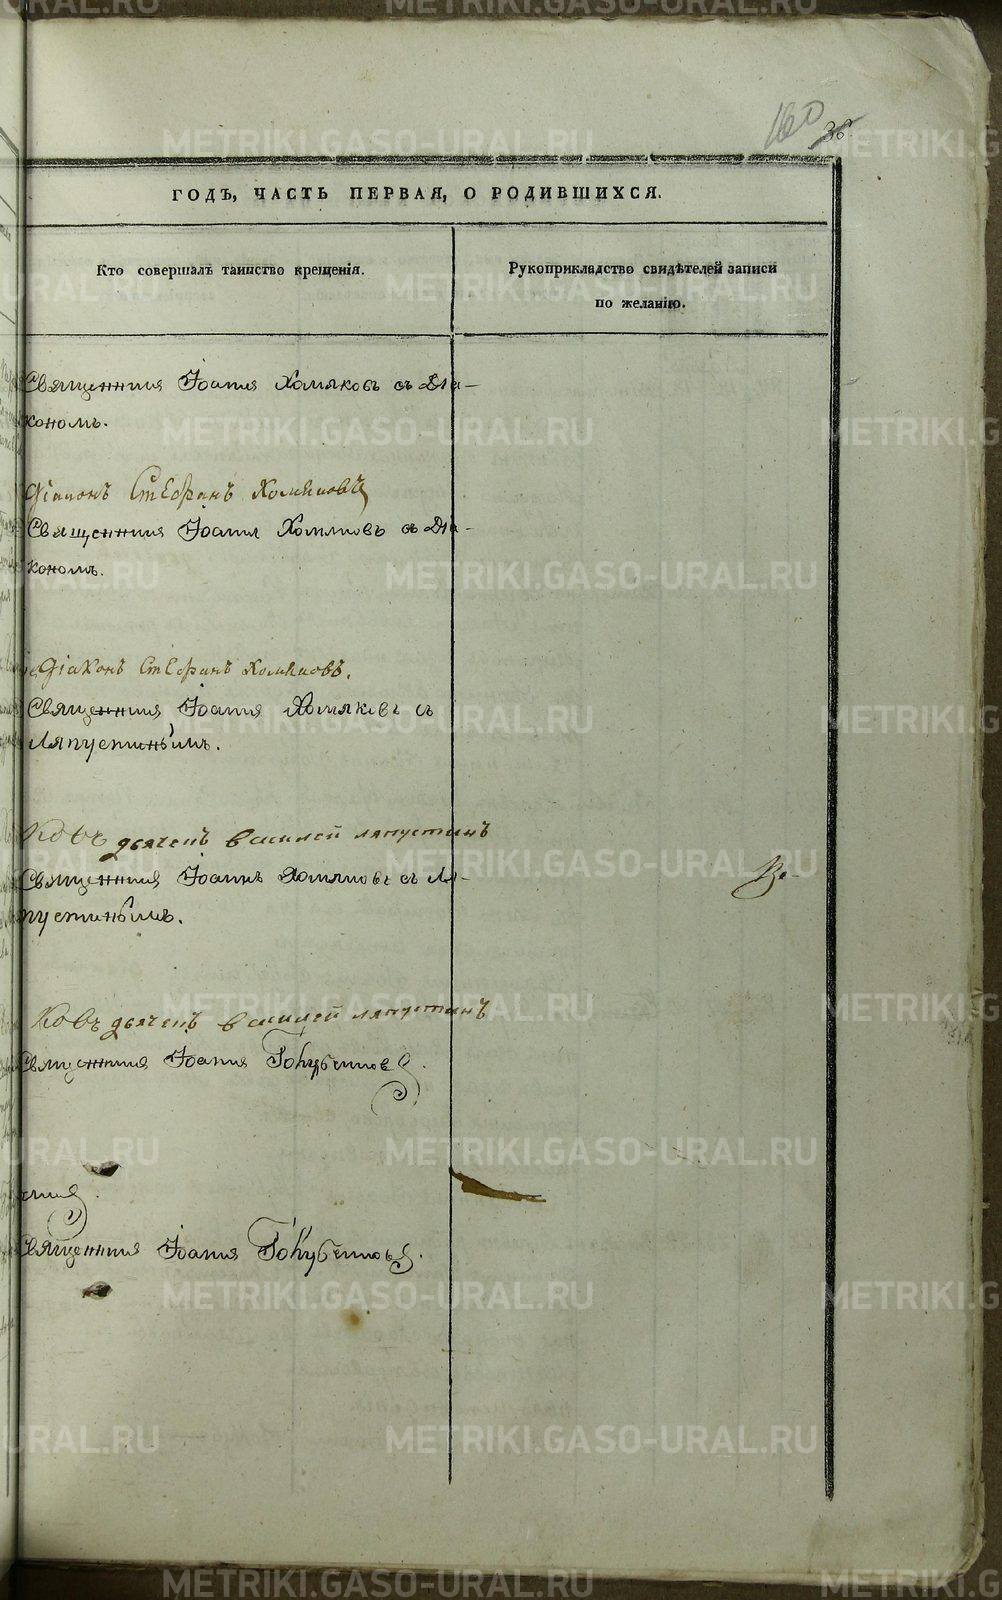 160
38
ГОДЪ, ЧАСТЬ ПЕРВАЯ, О РОДИВШИХСЯ.
Кто совершалъ таинство крещенія.
Рукоприкладство свидѣтелей записи
по желанію.
Священникъ Іоаннъ Хомяковъ съ Діа-
кономъ.
Діаконъ Стефанъ Хомяковъ
Священникъ Іоаннъ Хомяковъ съ Діа-
кономъ.
Діаконъ Стефанъ Хомяковъ.
Священникъ Іоаннъ Хомяковъ съ
Ляпустинымъ.
дьячекъ василей ляпустинъ
Священникъ Іоаннъ Хомяковъ съ Ля-
пустинымъ.
дьячекъ василей ляпустинъ
Священникъ Іоаннъ Голубчиковъ.
Священникъ Іоаннъ Голубчиковъ.
METRIKI.GASO-URAL.RU